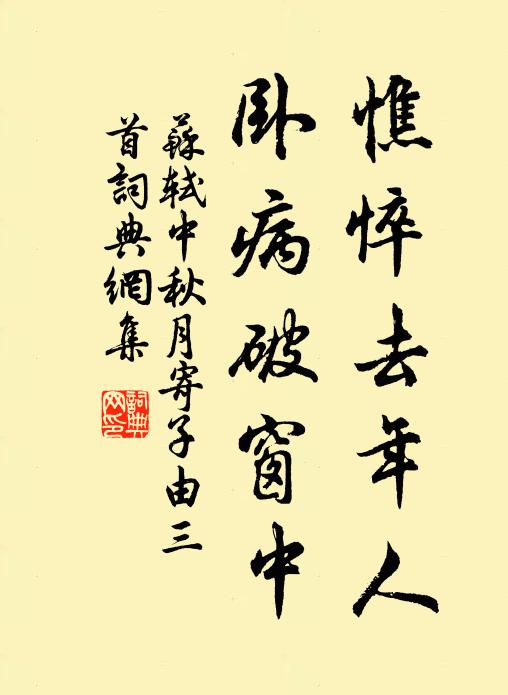 憔悴去年人
卧病破窗中
蘇軾中秋月寄子由三
首詞典網集
詞典
网印